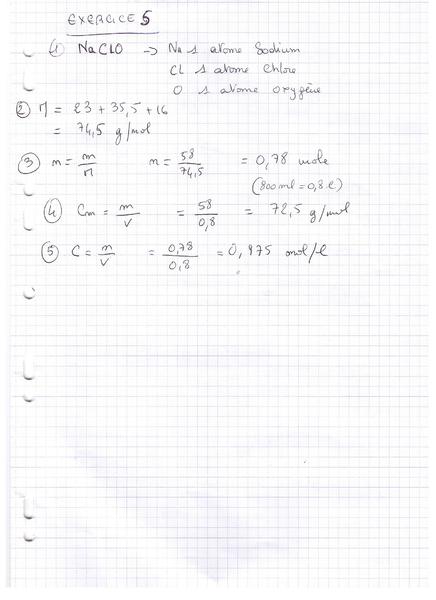 EXERCICE 5
1) NaClO -> Na 1 atome Sodium
Cl 1 atome Chlore
O 1 atome oxygène
② M = 23 + 35,5 + 16
= 74,5 g/mol
③ n = m/M n = 58/74,5 = 0,78 mole
(800 ml = 0,8 l)
④ Cm = m/V = 58/0,8 = 72,5 g/mol
⑤ C = n/V = 0,78/0,8 = 0,975 mol/l